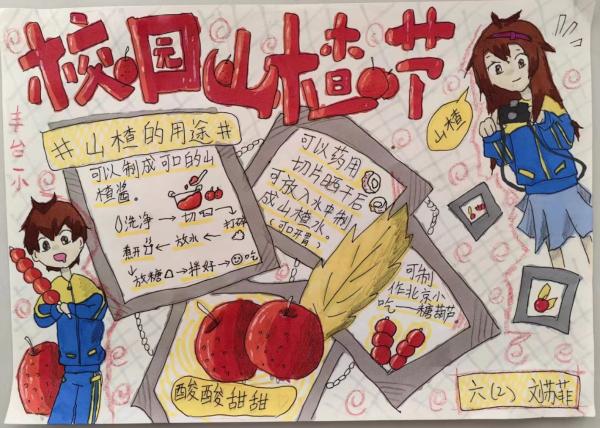 校园山楂节
丰台一小
#山楂的用途#
可以制成可口的山
楂酱。
①洗净→切口
打碎
煮开
放水
放糖→拌好→吃
可以药用
切片晒干后
可放入水中制
成山楂水。
(可开胃)
山楂
可制
作北京小
吃——糖葫芦。
酸酸甜甜
六(2) 刘苏菲